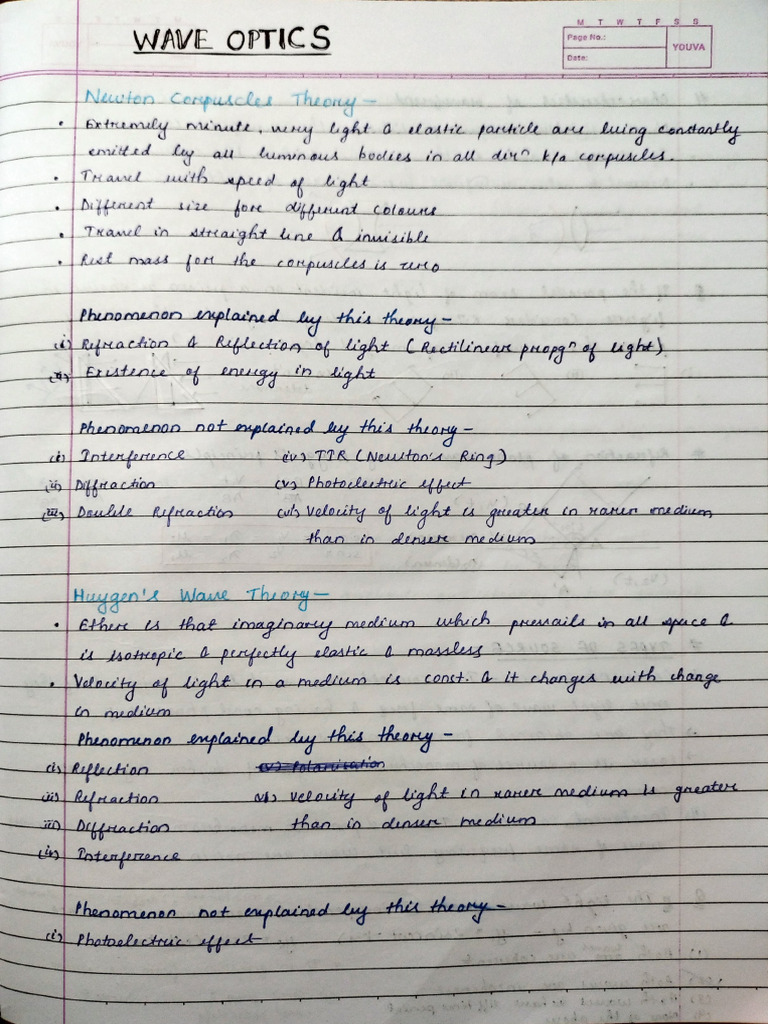 WAVE OPTICS
M T W T F S S
Page No.:
Date:
YOUVA
Newton Corpuscles Theory –
• Extremely minute, very light & elastic particle are being constantly
emitted by all luminous bodies in all dirⁿ k/a corpuscles.
• Travel with speed of light
• Different size for different colours
• Travel in straight line & invisible
• Rest mass for the corpuscles is zero
Phenomenon explained by this theory –
(i) Refraction & Reflection of light (Rectilinear propgⁿ of light)
(ii) Existence of energy in light
Phenomenon not explained by this theory –
(i) Interference (iv) TIR (Newton's Ring)
(ii) Diffraction (v) Photoelectric effect
(iii) Double Refraction (vi) Velocity of light is greater in rarer medium
than in denser medium
Huygen's Wave Theory –
• Ether is that imaginary medium which prevails in all space &
is isotropic & perfectly elastic & massless
• Velocity of light in a medium is const. & it changes with change
in medium
Phenomenon explained by this theory –
(i) Reflection (v) Polarisation
(ii) Refraction (v) Velocity of light in rarer medium is greater
(iii) Diffraction than in denser medium
(iv) Interference
Phenomenon not explained by this theory –
(i) Photoelectric effect